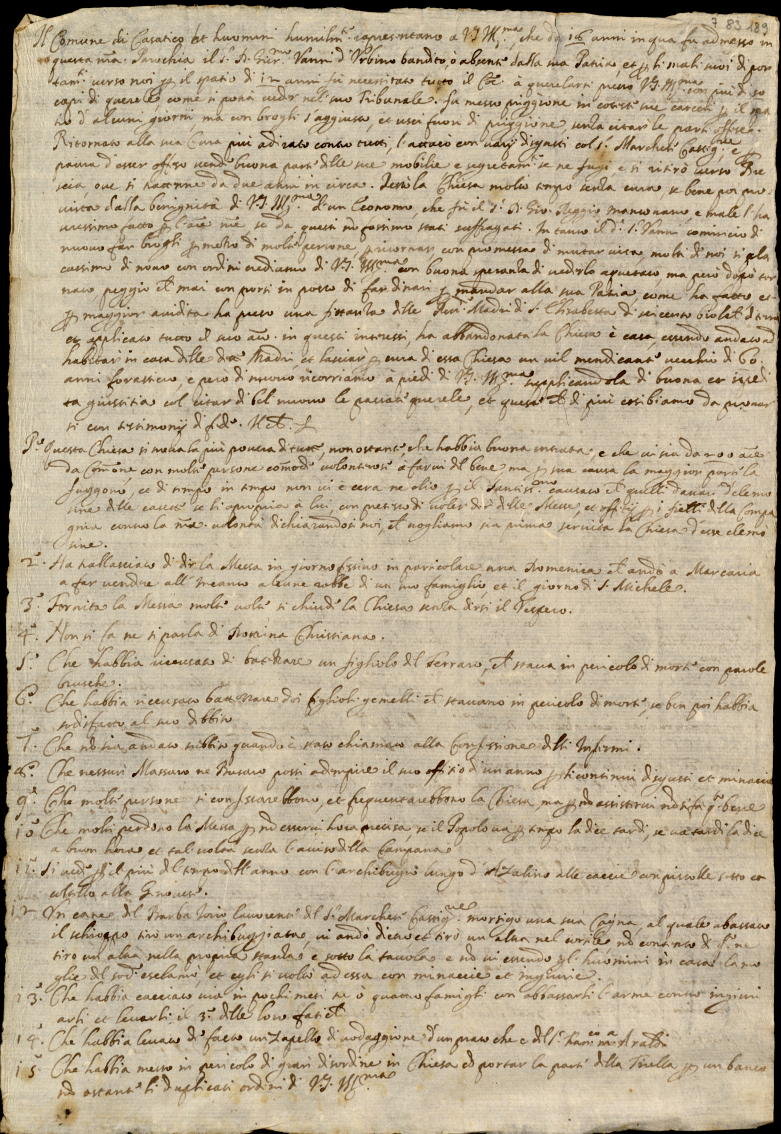 7 83 189
Il Comune di Casatico et huomini humilm.te rapresentano a V.S. Ill.ma, che da 16 anni in qua fu admesso in
questa n͂ra Parochia il S.r D. Vanni d'Urbino bandito, o absente dalla sua Patria, et p li mali suoi di por
tam.ti verso noi p il spatio di 12 anni fu necessitato tutto il Co.e à querelarsi presso V.S. Ill.ma con piu di 20
capi di querele, come si potrà veder nel suo Tribunale. Fu messo priggione in coteste sue carceri p il
d'alcuni giorni, ma con brogli s'aggiustò, et uscì fuori di priggione senza citar le parti offese.
Ritornato alla sua Cura più adirato contro tutti, l'attacò con varij disgusti col S.r Marchese Castig.ne e p
paura d'esser offeso vendè buona parte delle sue mobilie e segretam.te se ne fugì, e si ritirò verso Bre
scia ove si trattenne da due anni in circa. Restò la Chiesa molto tempo senza cura se bene poi pro
vista dalla benignità di V.S. Ill.ma d'un Economo, che fu il S.r D. Gio. Reggio mantovano, e male l'ha
vressimo fatto p se da questi no fossimo stati suffragati. In tanto il d.o S.r Vanni cominciò di
nuovo far brogli p mezo di molte persone, p ritornar con promessa di mutar vita, molti di noi si pla
cassimo di novo con ordini crediamo di V.S. Ill.ma con buona speranza di vederlo aquetato, ma però dopo tor
nato peggio che mai con porsi in posto di far dinari p mandar alla sua Patria, come ha fatto et
p maggior avidità ha preso una fittanza delle Madri di S. Elisabetta di seicento biolche di terra
et applicato tutto il suo in questi interessi, ha abbandonata la Chiesa e casa, essendo andato ad
habitar in casa delle dette Madri, et lasciar p cura di essa Chiesa un vil mendicante vecchio di 60
anni forastiero, e però di nuovo ricorriamo a piedi di V.S. Ill.ma supplicandola di buona et
ta giustitia col citar di bel nuovo le passate querele, et queste che di più esibiamo da provar
si con testimonij di fede.
P.o Questa Chiesa si trova la più povera di tutte, non ostante, che habbia buona entrata, e che vi sia da 200
da Com.one con molte persone comode volonterose à farvi del bene ma p sua causa la maggior parte la
fuggono, et di tempo in tempo non vi è cera ne olio p il causato che quelli danari d'elemo
sine delle cassette se li apropria à lui, con pretesto di voler dir delle Messe, et p i fratelli della Compa
gnia contro la n͂ra volontà dichiarandosi noi, che vogliamo sia prima servita la Chiesa d'esse elemo
sine.
2.o Ha trallasciato di dir la Messa in giorno festivo in particolare una Domenica che andò a Marcaria
a far vendere all'incanto alcune robbe di un suo famiglio, et il giorno di S. Michele.
3.o Fornita la Messa molte volte si chiude la Chiesa senza dirsi il Vespero.
4.o Non si fa ne si parla di Dottrina Christiana.
5.o Che habbia riccusato di battezare un figliolo del Ferraro, che stava in pericolo di morte con parole
brusche.
6.o Che habbia riccusato battezare doi figlioli gemelli che stavano in pericolo di morte, se ben poi habbia
sodisfatto al suo debbito
7.o Che no sia andato subbito quando è stato chiamato alla Confessione delli Infermi.
8.o Che nessun Massaro ne possi adempire il suo offitio d'un anno p li continui disgusti et minaccie
9.o Che molte persone si confessarebbono, et frequentarebbono la Chiesa, ma p no assistervi no si fa q.o bene
10.o Che molti perdono la Messa p no esservi hora precisa se il Popolo va p tempo la dice tardi, se va tardi la dice
a buon hora et tal volta senza l'aviso della Campana.
11.o Si vede p il più del tempo dell'anno con l'archibuggio lungo d' delle caccie con pistolle sotto et
coltello alla Genovese.
12 Un cane del Barba Iorio lavorente del S.r Marchese Castig.ne morsigò una sua Cagna, al quale abassato
il schioppo tirò un archibuggiata, vi andò dietro et tirò un altra nel cortile no contento di q.o ne
tirò un altra nella propria stanza e sotto la tavola e no vi essendo gl'huomini in casa la mo
glie del sud.o esclamò, et egli si voltò ad essa con minaccie et ingiurie.
13.o Che habbia cacciato via in pochi mesi tre o quattro famigli con abbassarli l'arme contro ingiuri
arli et levarli il 3.o delle loro fatiche
14.o Che habbia levato di fatto un Zapello di d'un prato che è del S.r
15.o Che habbia messo in pericolo di gran disordine in Chiesa col portar la parte della p un banco
no ostante li duplicati ordini di V.S. Ill.ma